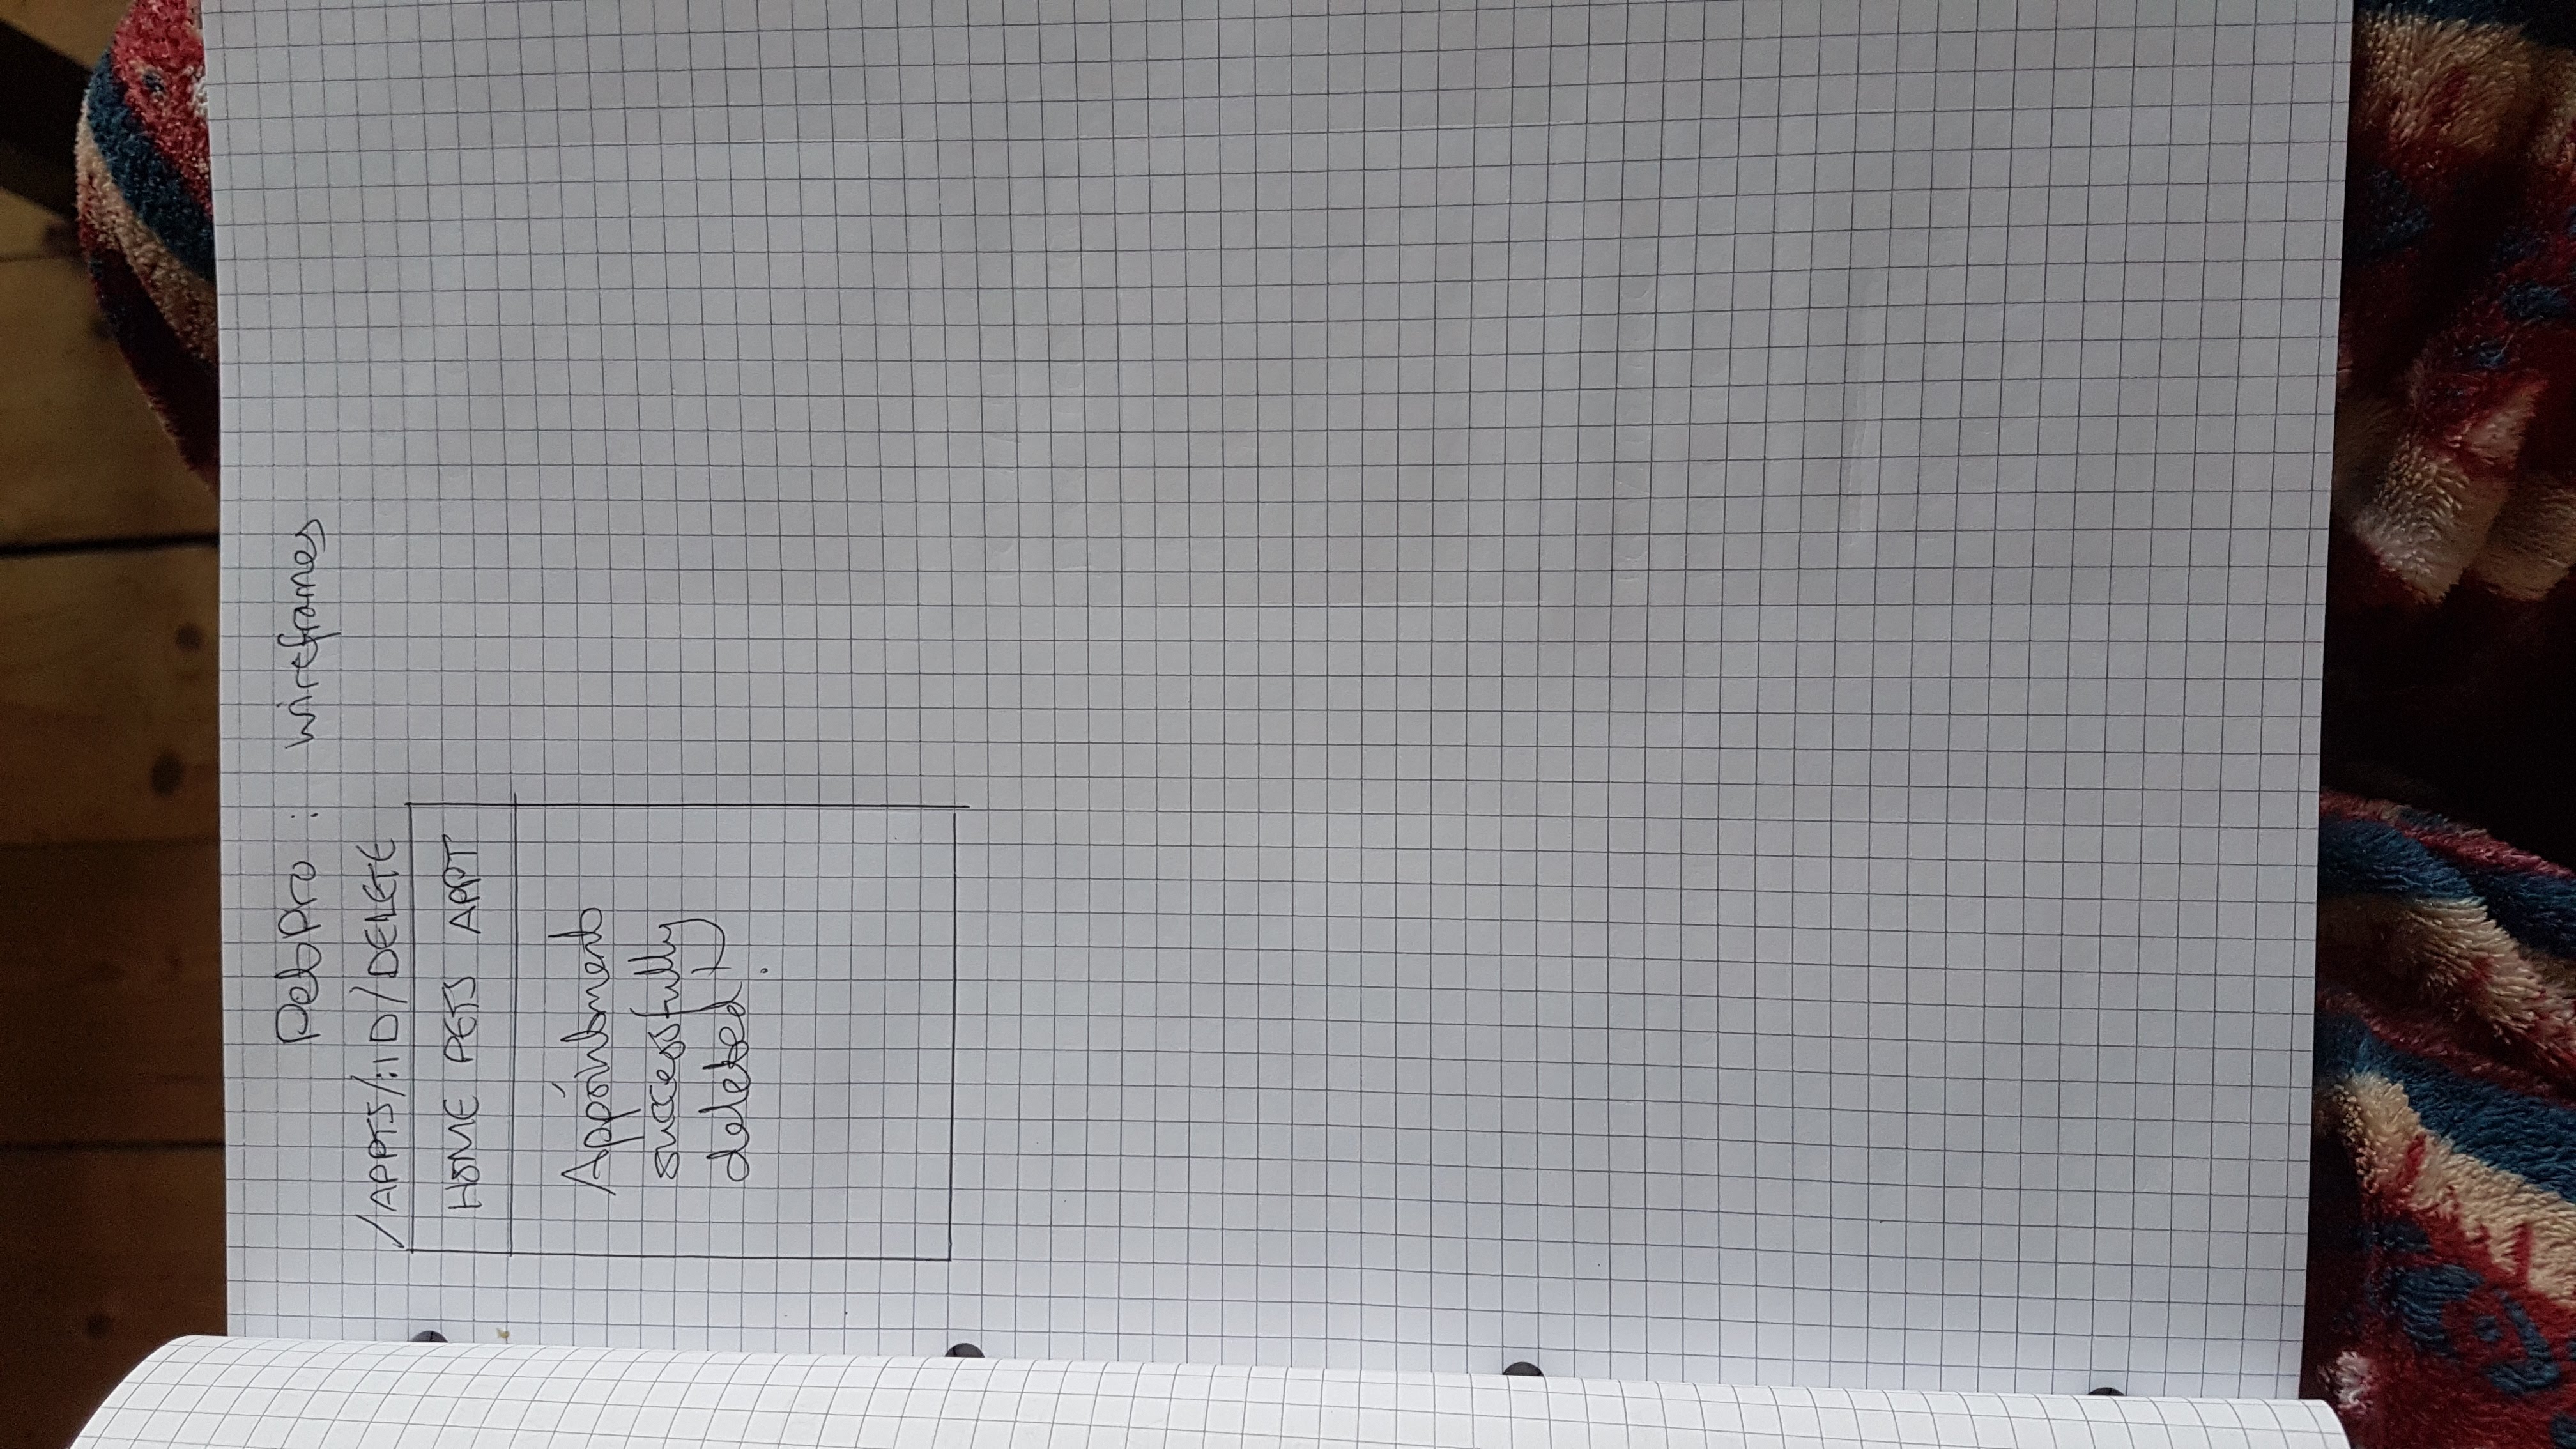 PetPro : Wireframes
/APPTS/:ID/DELETE
HOME PETS APPT
Appointment
successfully
deleted!